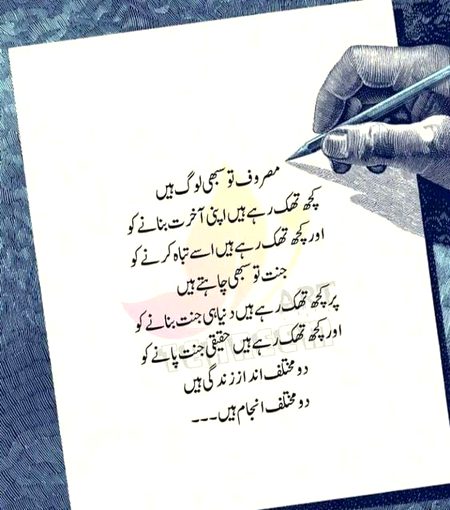 مصروف تو سبھی لوگ ہیں
کچھ تھک رہے ہیں اپنی آخرت بنانے کو
اور کچھ تھک رہے ہیں اسے تباہ کرنے کو
جنت تو سبھی چاہتے ہیں
پر کچھ تھک رہے ہیں دنیا ہی جنت بنانے کو
اور کچھ تھک رہے ہیں حقیقی جنت پانے کو
دو مختلف انداز زندگی ہیں
دو مختلف انجام ہیں۔۔۔